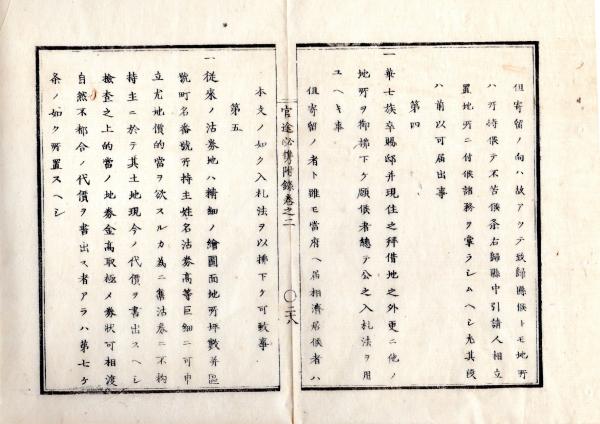 但寄留ノ向ハ故アツテ致歸縣候トモ地所
ハ所持候テ不苦候条右歸縣中引請人相立
置地所ニ付候諸務ヲ掌ラシムヘシ尤其段
ハ前以可届出事
第四
一華士族幸賜邸并現住之拜借地之外更ニ他ノ
地所ヲ御拂下ケ願候者總テ公之入札法ヲ用
ユヘキ事
但寄留ノ者ト雖モ當府ヘ届相濟居候者ハ
官途必携附錄卷之二
〇二八
本文ノ如ク入札法ヲ以拂下ケ可致事
第五
一從來ノ沽券地ハ精細ノ繪圖面地所坪數并區
號町名番號所持主姓名沽券高等巨細ニ可申
立尤地價的當ヲ欲スルカ為ニ舊沽券ニ不拘
持主ニ於テ其土地現今ノ代價ヲ書出スヘシ
檢査之上的當ノ地券金高取極メ券狀可相渡
自然不都合ノ代價ヲ書出ス者アラハ第七ケ
条ノ如ク所置スヘシ